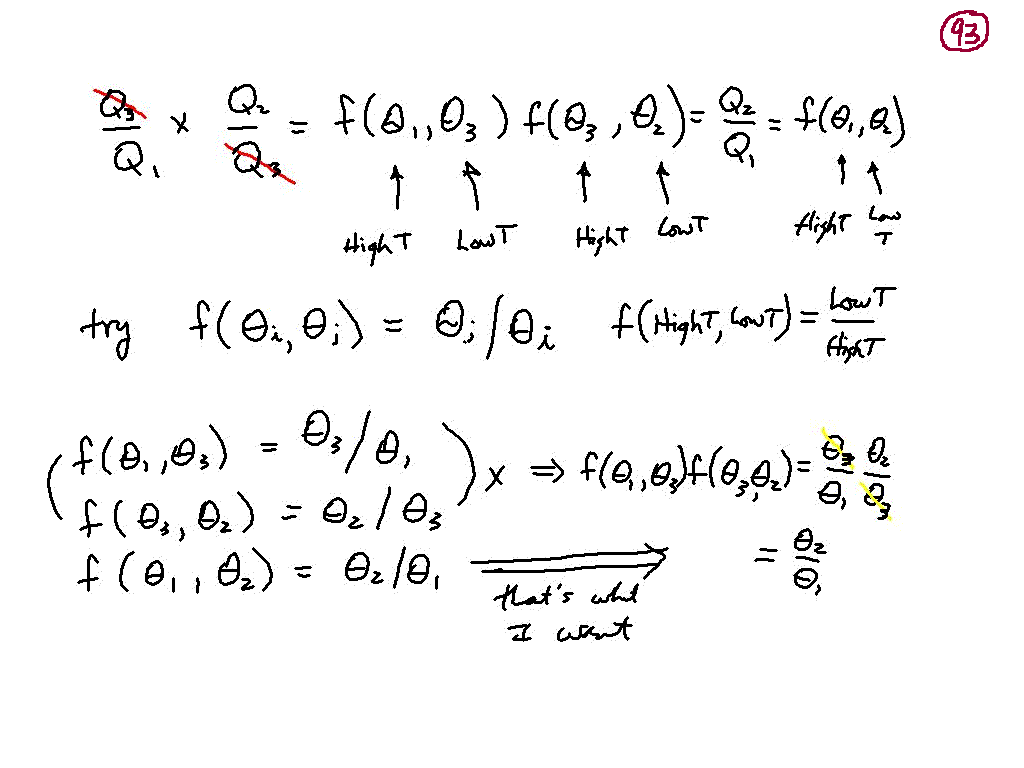 93
Q₃/Q₁ × Q₂/Q₃ = f(θ₁,θ₃) f(θ₃,θ₂) = Q₂/Q₁ = f(θ₁,θ₂)
↑ ↑ ↑ ↑ ↑ ↑
High T Low T High T Low T High T Low T
try f(θᵢ,θⱼ) = θⱼ/θᵢ f(High T, Low T) = Low T/High T
(f(θ₁,θ₃) = θ₃/θ₁
f(θ₃,θ₂) = θ₂/θ₃) × ⇒ f(θ₁,θ₃)f(θ₃,θ₂) = θ₃/θ₁ θ₂/θ₃
f(θ₁,θ₂) = θ₂/θ₁ ⟹ = θ₂/θ₁
that's what
I want